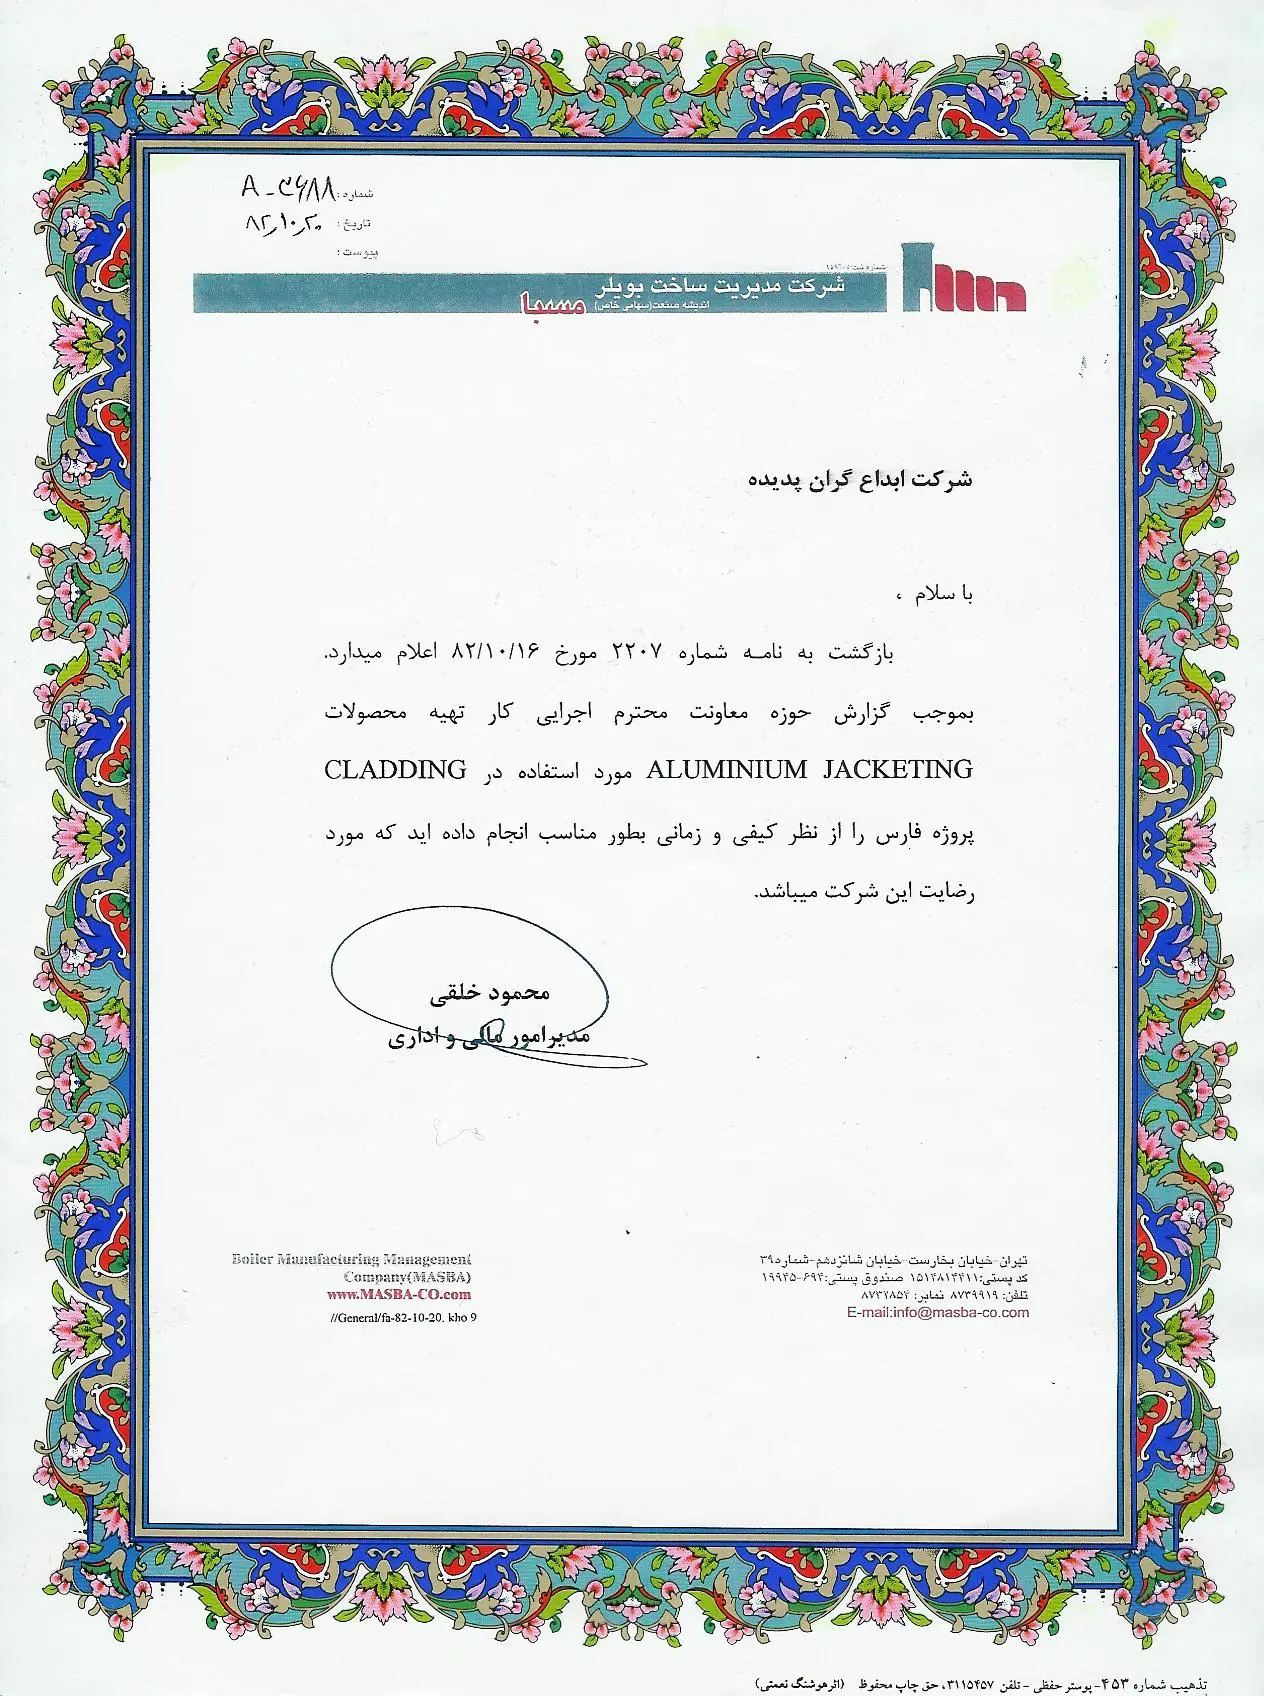 شماره: A-۳۶۸۸
تاریخ: ۸۲٫۱۰٫۲۰
پیوست:
شرکت مدیریت ساخت بویلر
اندیشه صنعت(سهامی خاص) مسبا
شرکت ابداع گران پدیده
با سلام ،
بازگشت به نامه شماره ۲۲۰۷ مورخ ۸۲/۱۰/۱۶ اعلام میدارد.
بموجب گزارش حوزه معاونت محترم اجرایی کار تهیه محصولات
ALUMINIUM JACKETING مورد استفاده در CLADDING
پروژه فارس را از نظر کیفی و زمانی بطور مناسب انجام داده اید که مورد
رضایت این شرکت میباشد.
محمود خلقی
مدیرامور مالی و اداری
تهران-خیابان بخارست-خیابان شانزدهم-شماره۳۹
کد پستی:۱۵۱۴۸۱۴۴۱۱ صندوق پستی:۶۹۴-۱۹۹۴۵
تلفن: ۸۷۳۹۹۱۹ نمابر: ۸۷۳۲۸۵۴
E-mail:info@masba-co.com
Boiler Manufacturing Management
Company(MASBA)
www.MASBA-CO.com
//General/fa-82-10-20. kho 9
تذهیب شماره ۴۵۳- پوستر حفظی - تلفن ۳۱۱۵۴۵۷، حق چاپ محفوظ (اثرهوشنگ نعمتی)